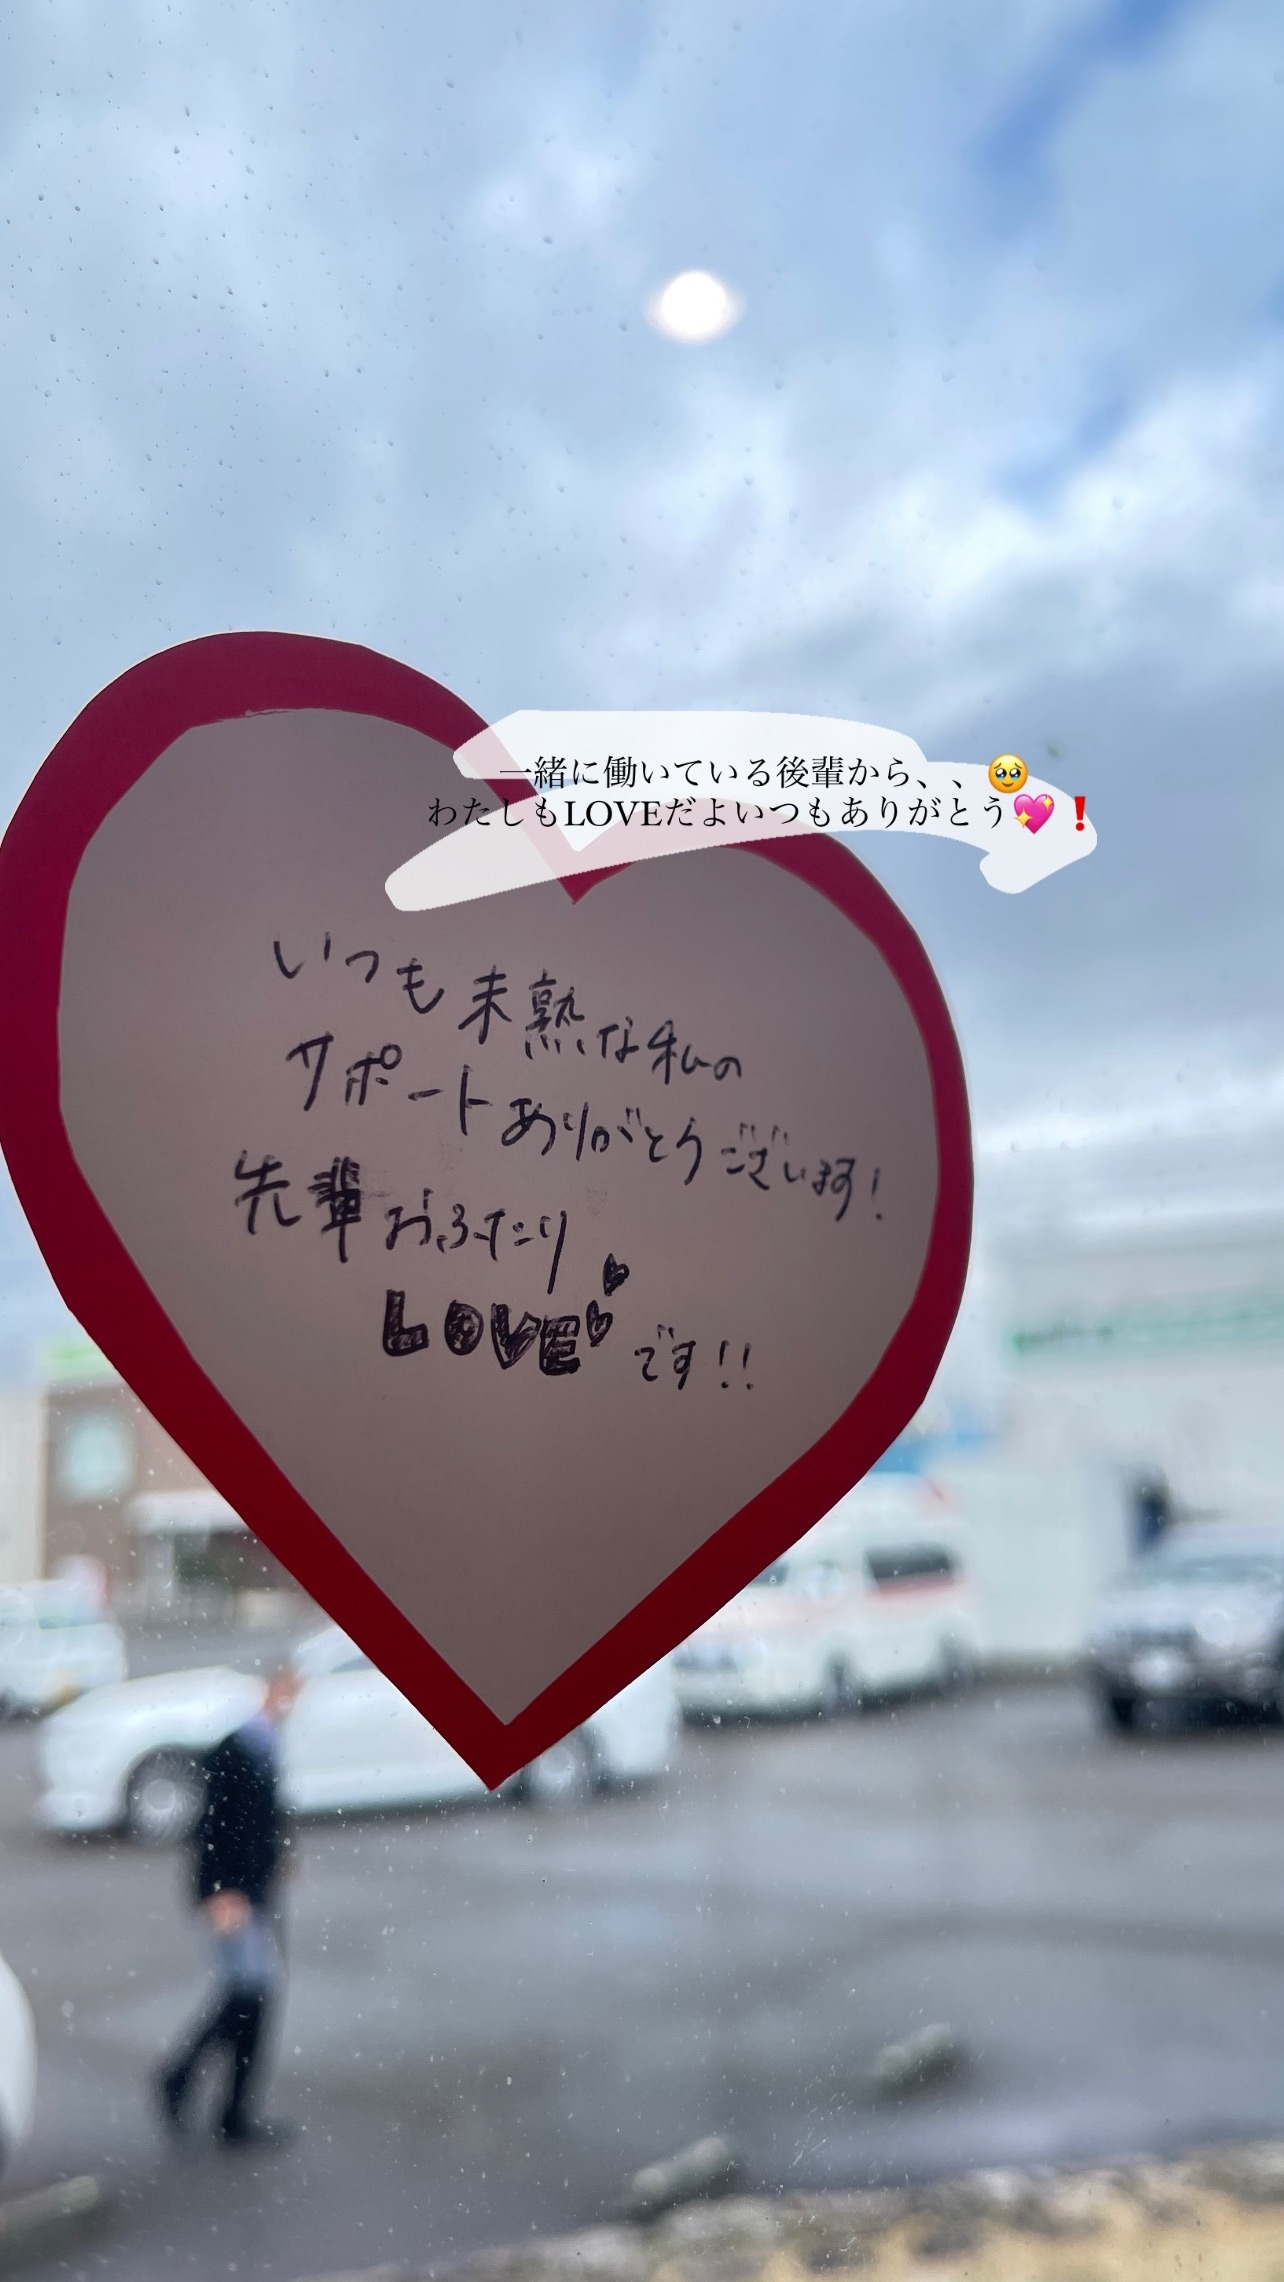 一緒に働いている後輩から、、🥹
わたしもLOVEだよいつもありがとう💖❗
いつも未熟な私の
サポートありがとうございます!
先輩おふたり
LOVE♥♥です!!